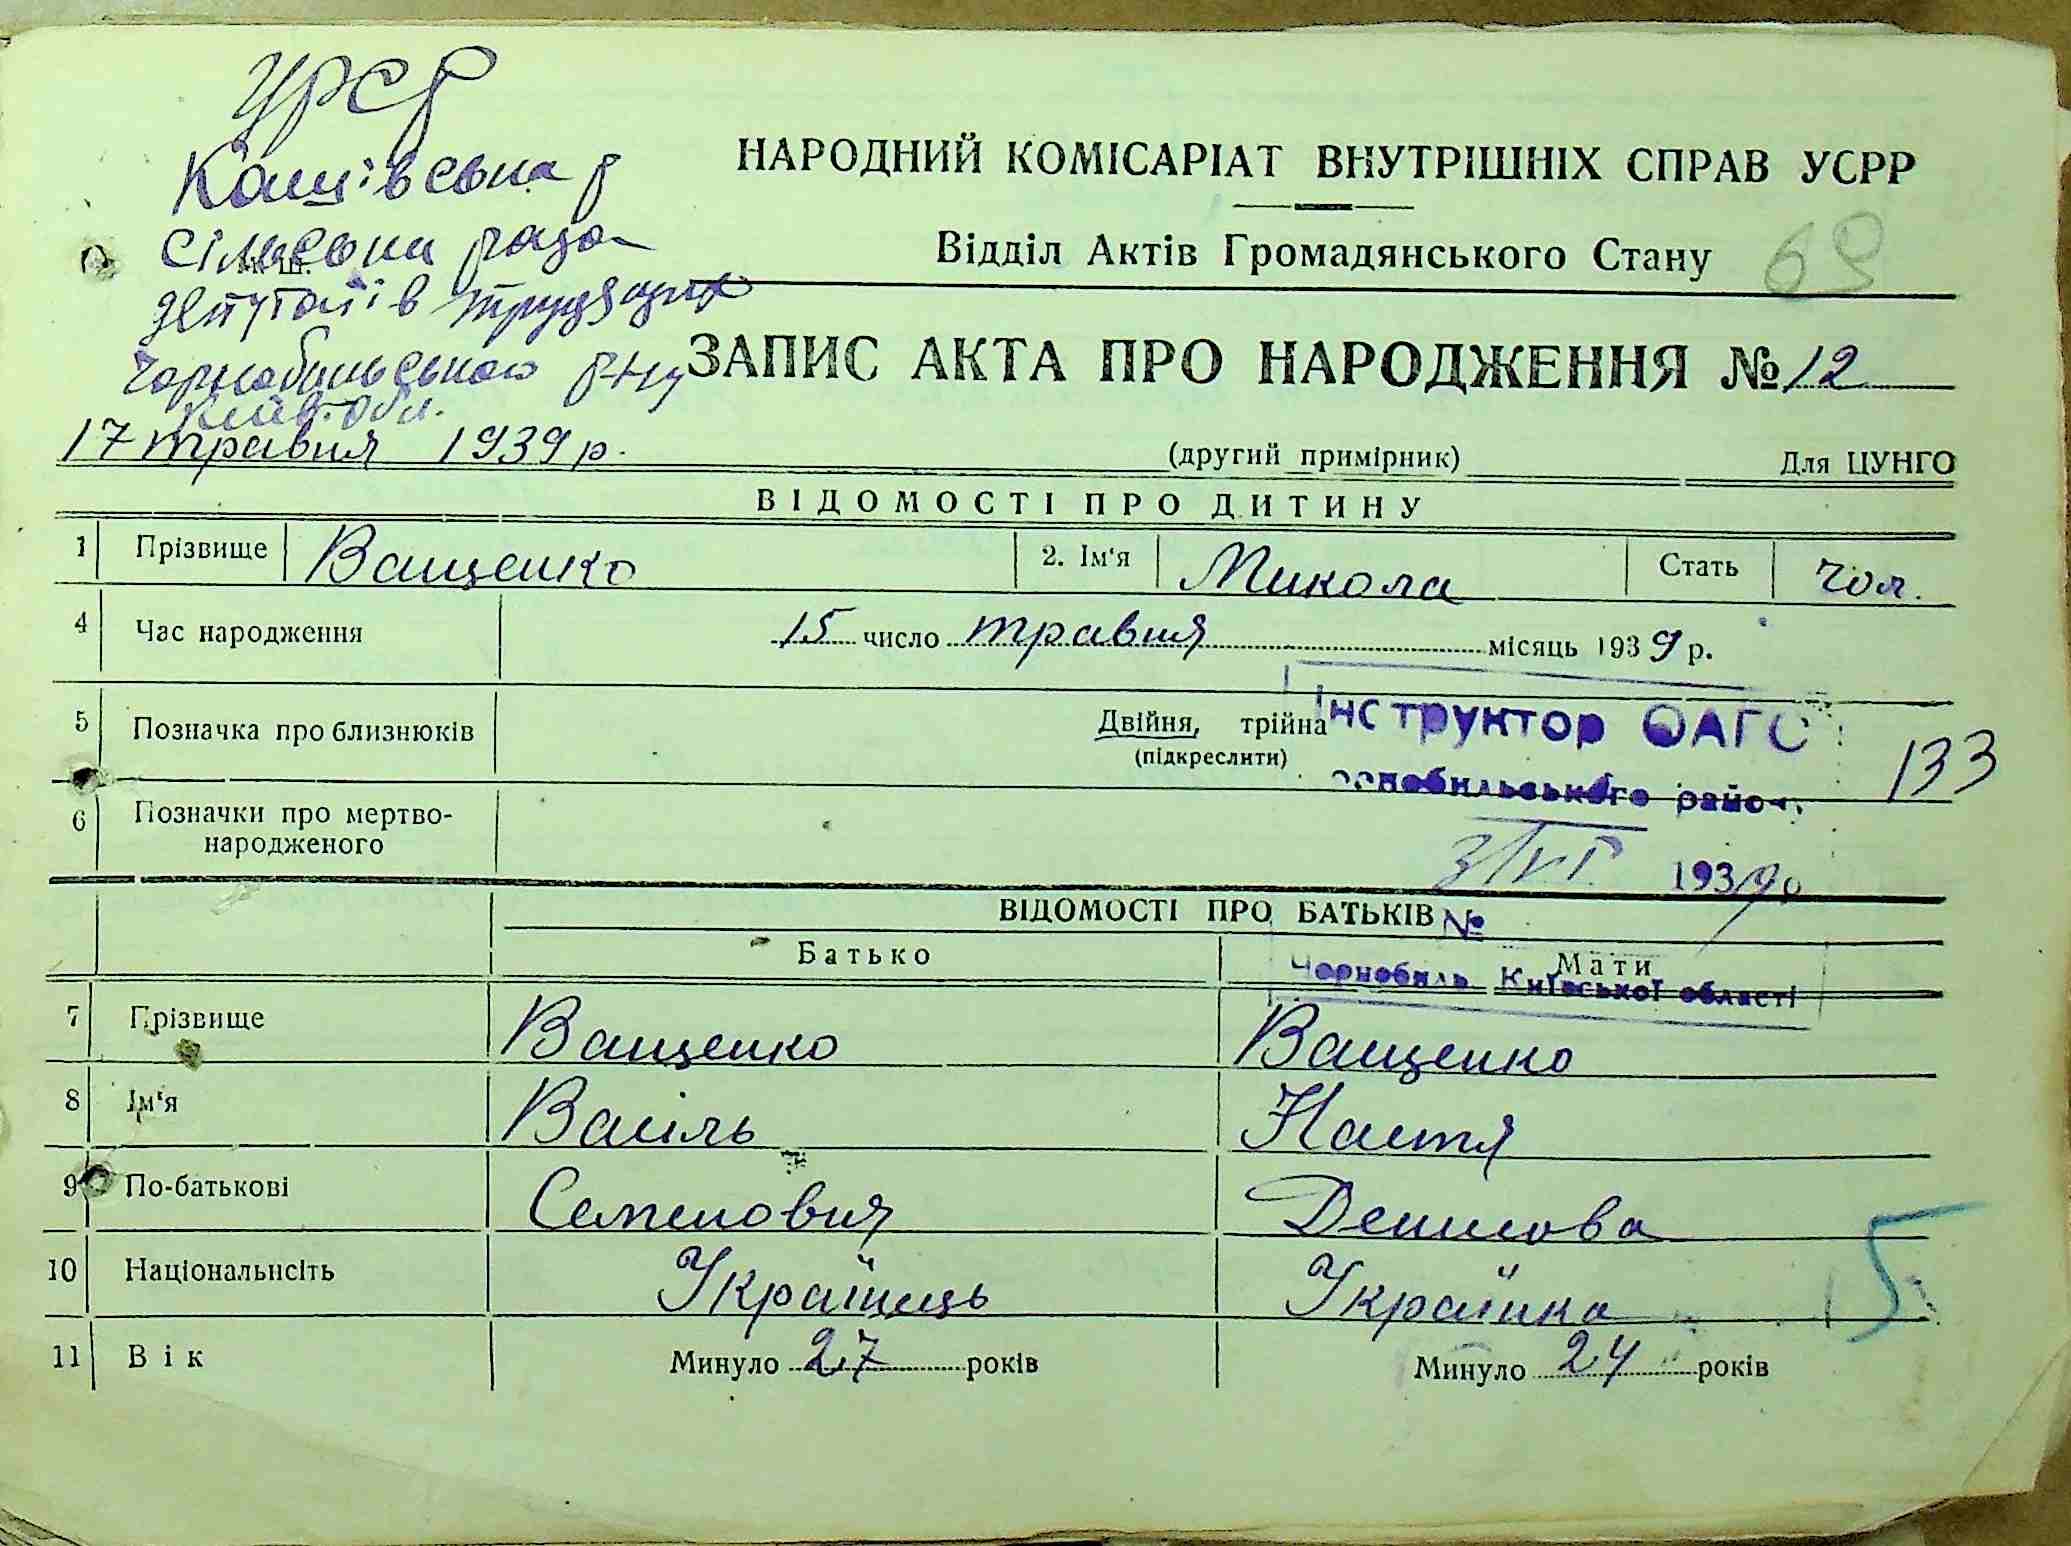 УРСР
Кошівська
сільська рада
депутатів трудящих
Чорнобильського р-ну
Київ. обл.
НАРОДНИЙ КОМІСАРІАТ ВНУТРІШНІХ СПРАВ УСРР
Відділ Актів Громадянського Стану
69
ЗАПИС АКТА ПРО НАРОДЖЕННЯ № 12
17 травня 1939 р.
(другий примірник)
Для ЦУНГО
ВІДОМОСТІ ПРО ДИТИНУ
1 Прізвище Ващенко 2. Ім'я Микола Стать чол.
4 Час народження 15 число травня місяць 1939 р.
5 Позначка про близнюків Двійня, трійня
(підкреслити)
Інструктор ОАГС
орнобильського район.
133
6 Позначки про мертво-
народженого
3/VI 1939 р
ВІДОМОСТІ ПРО БАТЬКІВ
№
Батько Мати
Чорнобиль Київської області
7 Прізвище Ващенко Ващенко
8 Ім'я Васіль Настя
9 По-батькові Семенович Денисова
10 Національність Українець Українка
5
11 Вік Минуло 27 років Минуло 24 років